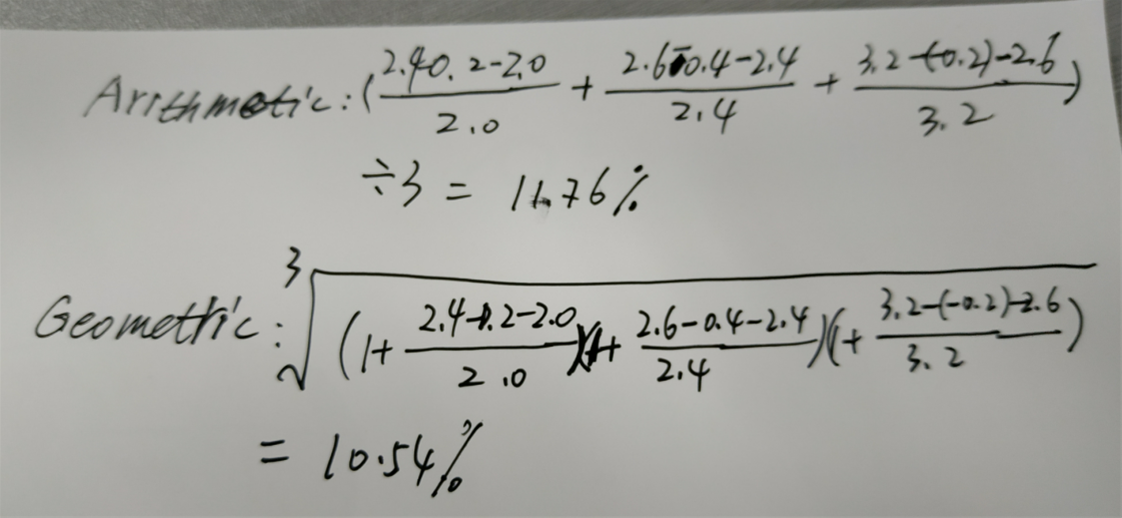 Arithmetic: ( (2.4-0.2-2.0)/2.0 + (2.6-0.4-2.4)/2.4 + (3.2-(-0.2)-2.6)/3.2 )
÷3 = 11.76%
Geometric: ³√( (1+ (2.4-0.2-2.0)/2.0 )(1+ (2.6-0.4-2.4)/2.4 )(1+ (3.2-(-0.2)-2.6)/3.2 ) )
= 10.54%